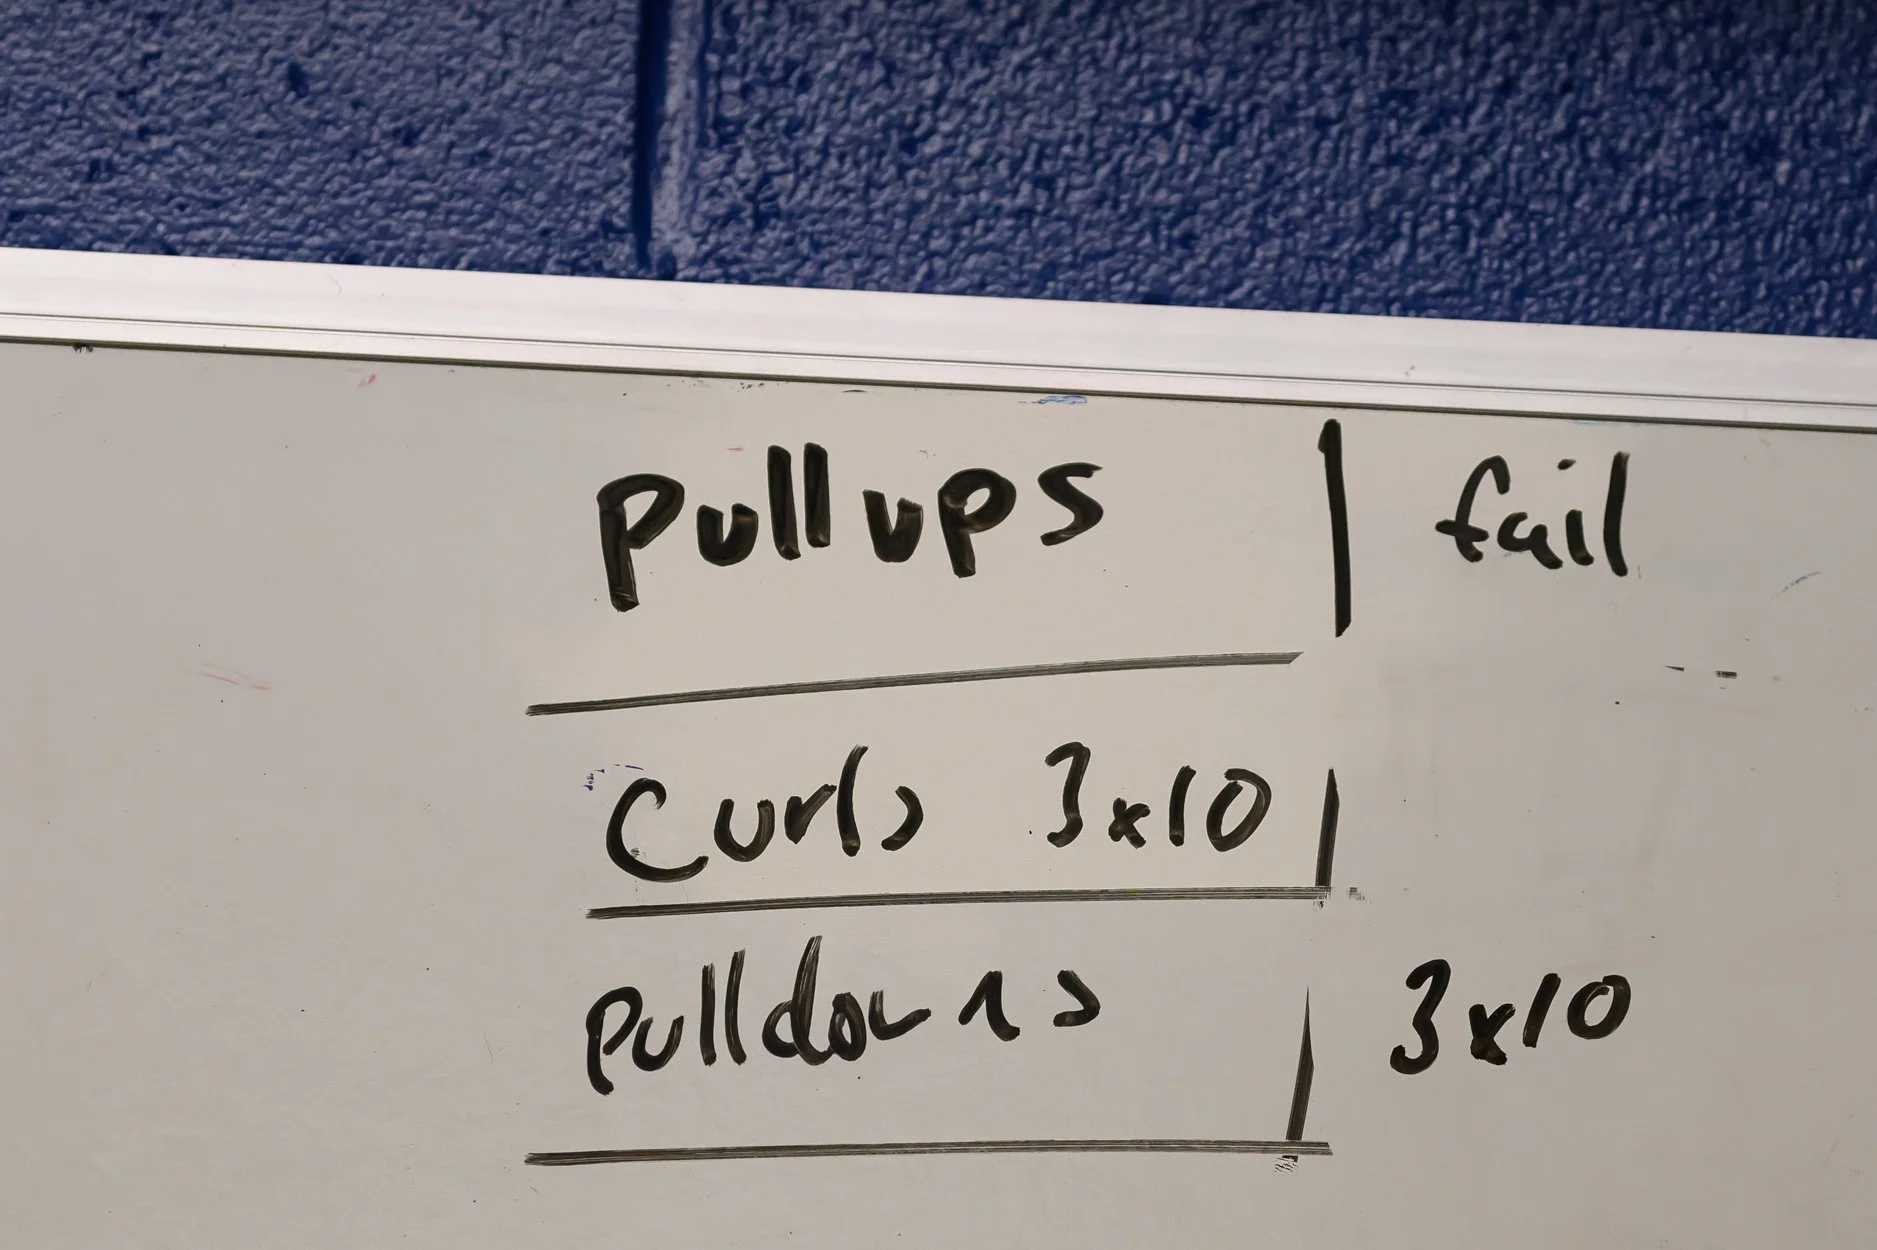 Pullups | fail
Curls 3x10 |
pulldowns | 3x10